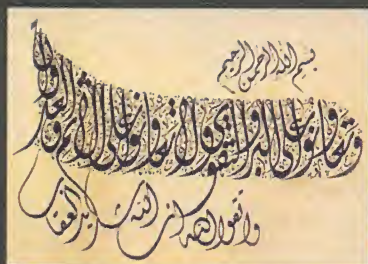 بسم الله الرحمن الرحيم
وتعاونوا على البر والتقوى ولا تعاونوا على الإثم والعدوان
واتقوا الله إن الله شديد العقاب